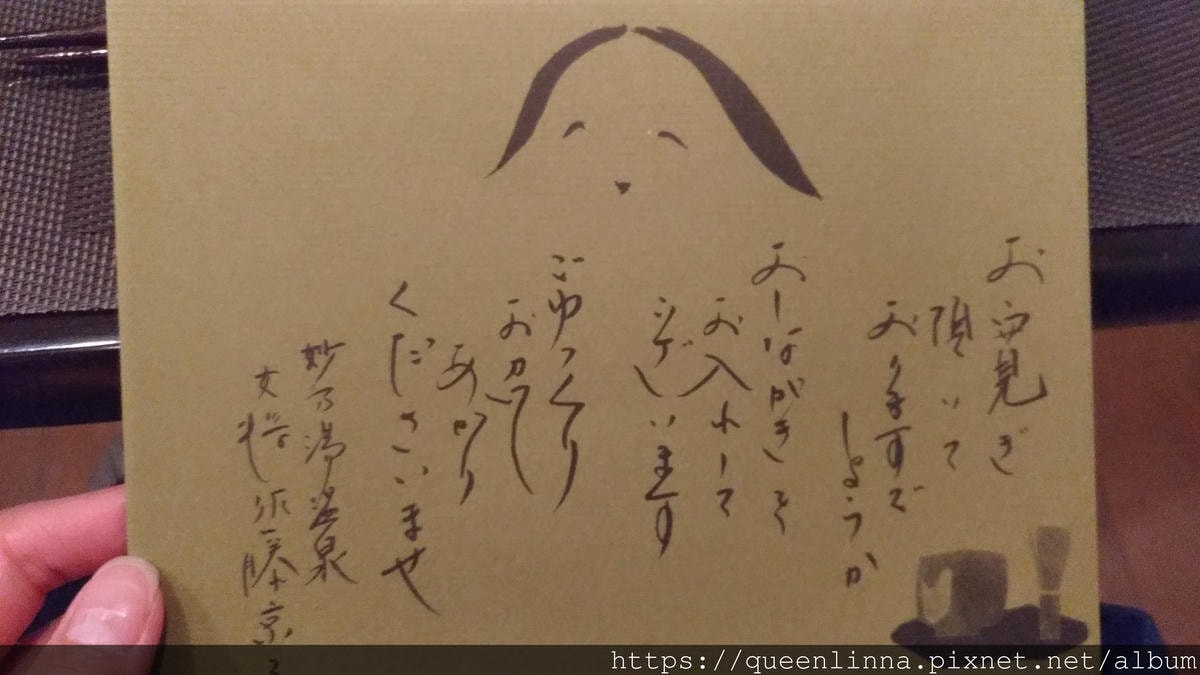 お寛ぎ
頂いて
おりますで
しょうか
おしながきを
お入れして
ございます
ごゆっくり
お召し
あがり
くださいませ
妙乃湯温泉
女将 佐藤京
https://queenlinna.pixnet.net/album